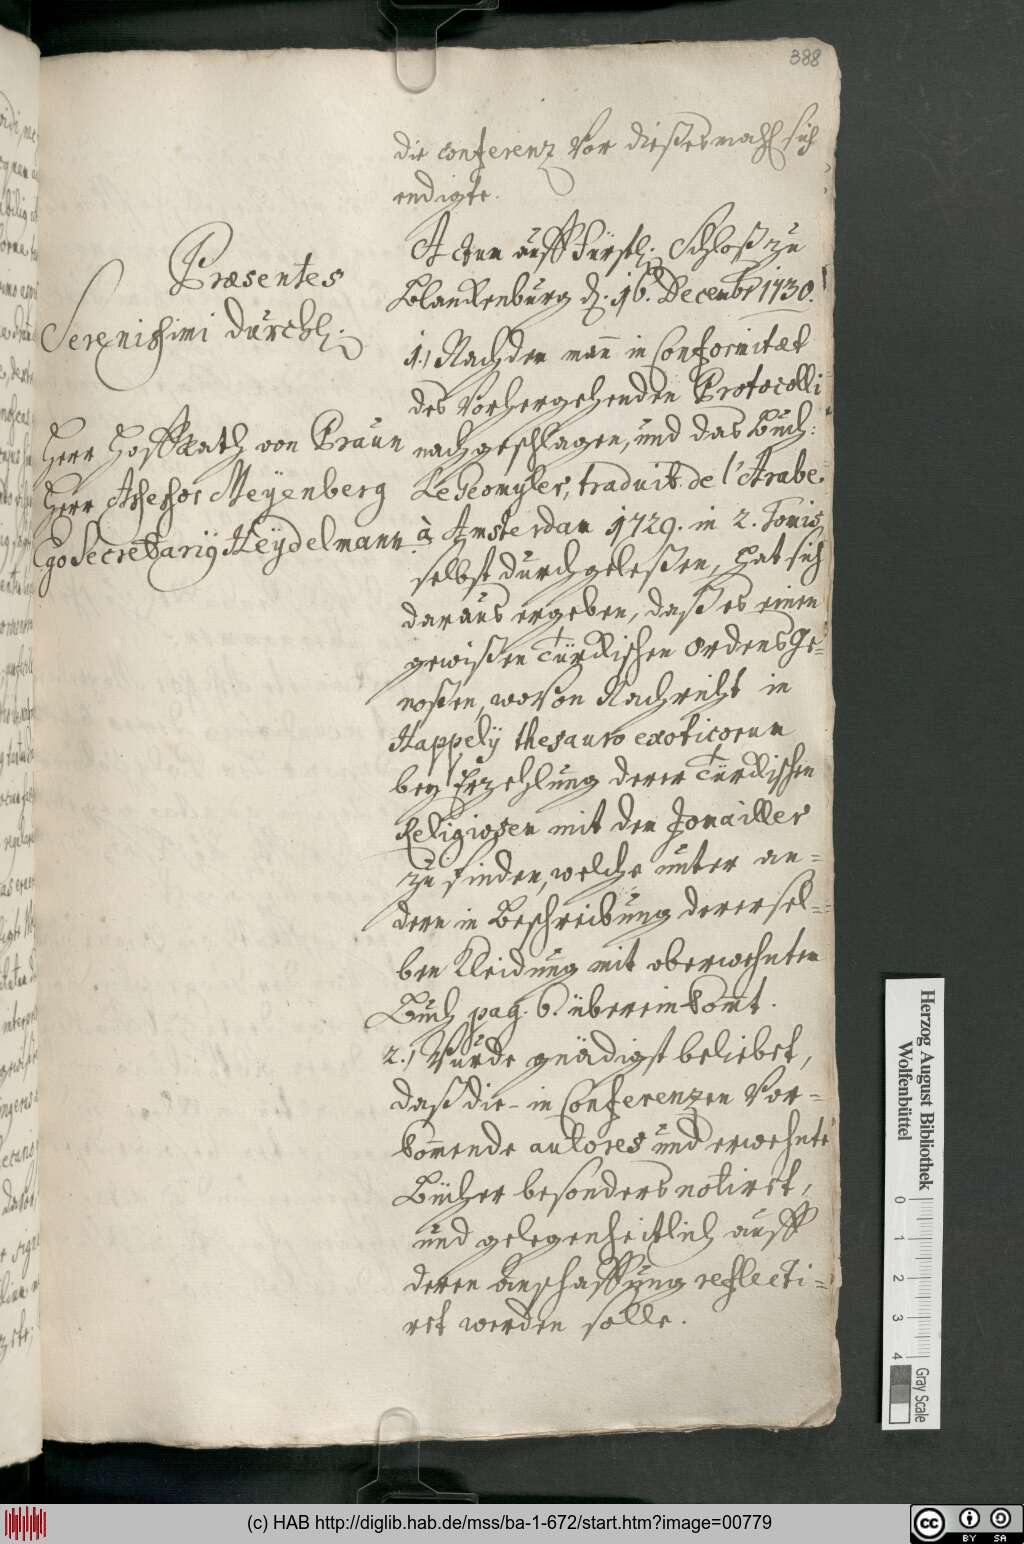 388
die conferenz vor dießesmahl sich
endigte.
Præsentes
Serenissimi Durchl.
Herr Hoffrath von Praun
Herr Assessor Meyenberg
Ego Secretarių Heydelmann.
Actum auff Fürstl. Schloß zu
Blanckenburg d. 16. Decembr 1730.
1.) Nachdem man̄ in Conformitæt
des vorhergehenden Protocolli
nachgeschlagen, und das Buch:
Le Geomyler, traduit de l'Arabe.
à Amsterdam 1729. in 2. Tomis
selbst durchgeleßen, hat sich
daraus ergeben, daß es einen
gewißen Türckischen OrdensGe-
noßen, wovon Nachricht in
Happelij thesauro exoticorum
bey Erzehlung derer Türckischen
Religiosen mit den Jomailler
zu finden, welche unter an-
dern in Beschreibung derersel-
ben Kleidung mit oberwehnten
Buch pag. 6. übereinkom̄t.
2.) Wurde gnädigst beliebet,
daß die - in Conferenzen vor-
kom̄ende autores und erwehnte
Bücher besonders notiret,
und gelegenheitlich auff
deren anschaffung reflecti-
ret werden solle.
Herzog August Bibliothek
Wolfenbüttel
0 1 2 3 4
Gray Scale
(c) HAB http://diglib.hab.de/mss/ba-1-672/start.htm?image=00779
cc BY SA